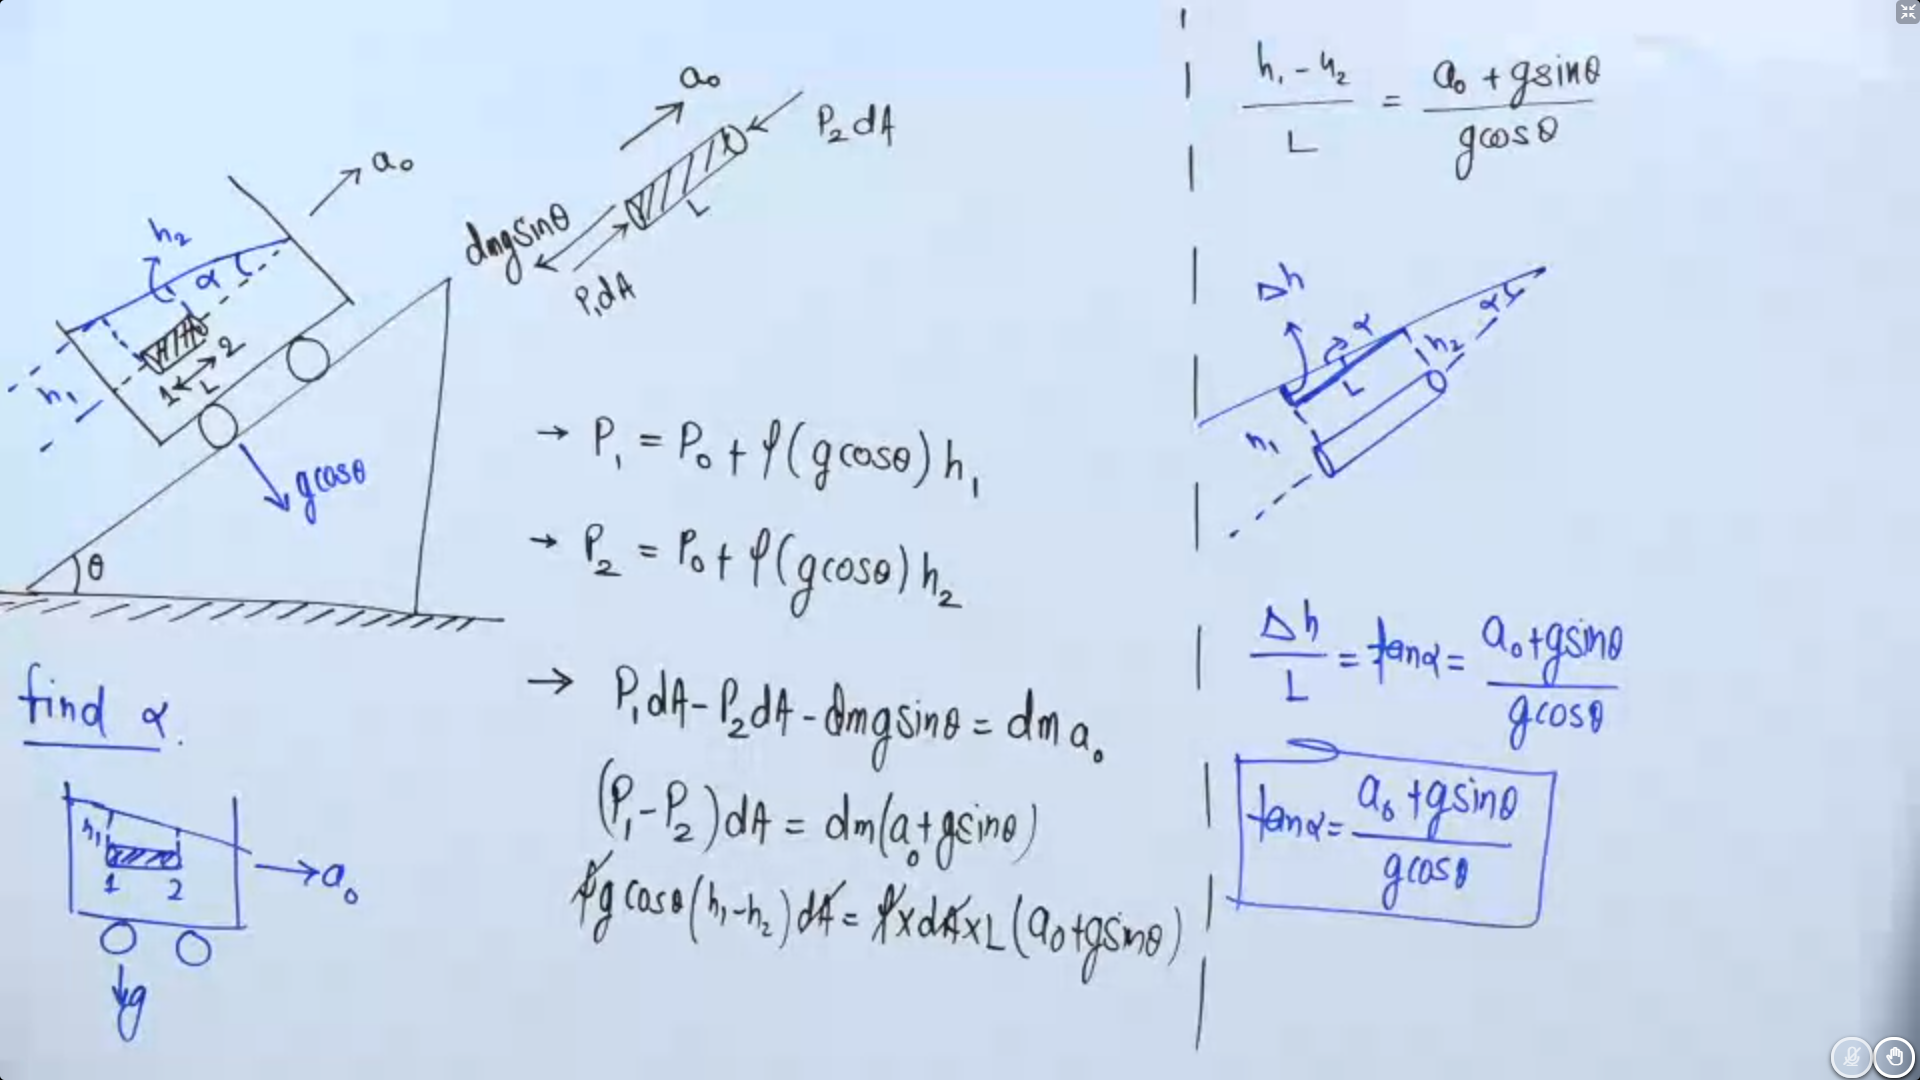 a₀
h₂
α
h₁
1
2
L
gcosθ
θ
find α.
h₁
1
2
a₀
g
a₀
P₂dA
L
dmgsinθ
P₁dA
→ P₁ = P₀ + ρ(gcosθ)h₁
→ P₂ = P₀ + ρ(gcosθ)h₂
→ P₁dA - P₂dA - dmgsinθ = dm a₀
(P₁-P₂)dA = dm(a₀+gsinθ)
ρg cosθ(h₁-h₂)dA = ρ×dA×L(a₀+gsinθ)
(h₁-h₂)/L = (a₀+gsinθ)/gcosθ
Δh
α
α
h₂
L
h₁
Δh/L = tanα = (a₀+gsinθ)/gcosθ
tanα = (a₀+gsinθ)/gcosθ